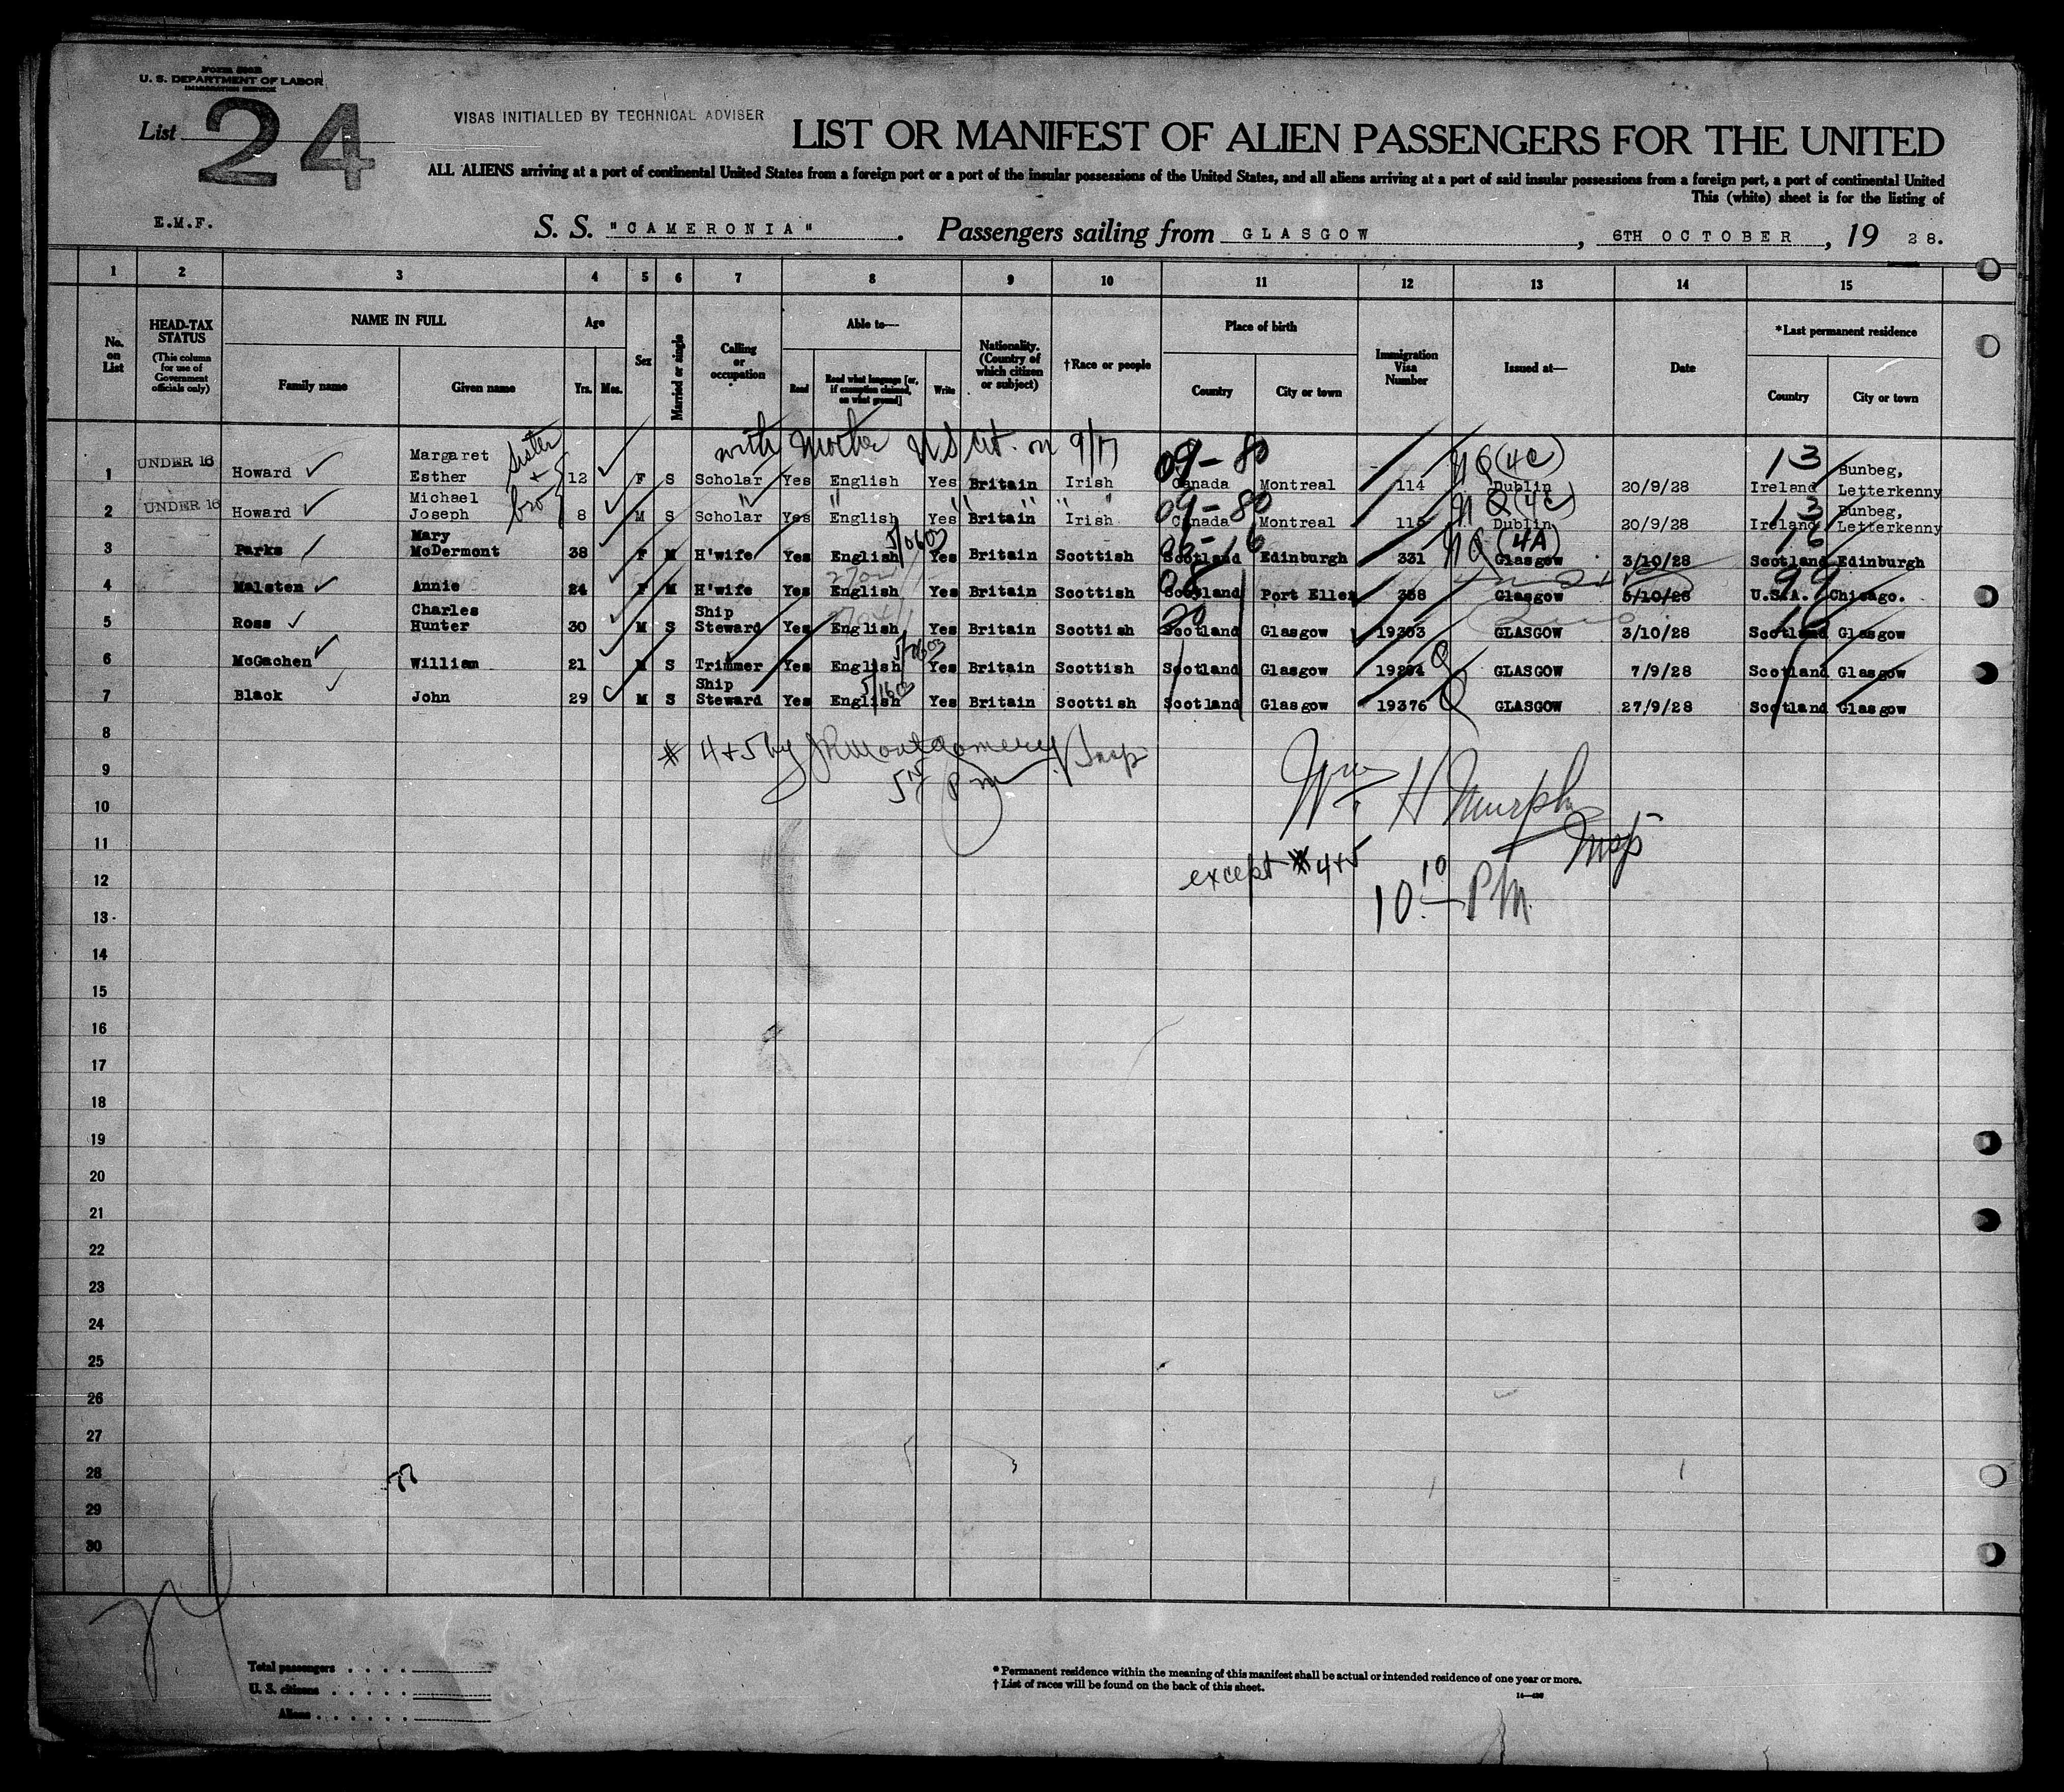 U. S. DEPARTMENT OF LABOR
IMMIGRATION SERVICE
List 24
VISAS INITIALLED BY TECHNICAL ADVISER
LIST OR MANIFEST OF ALIEN PASSENGERS FOR THE UNITED
ALL ALIENS arriving at a port of continental United States from a foreign port or a port of the insular possessions of the United States, and all aliens arriving at a port of said insular possessions from a foreign port, a port of continental United
This (white) sheet is for the listing of
E.M.F.
S. S. "CAMERONIA". Passengers sailing from GLASGOW, 6TH OCTOBER, 19 28.
1 2 3 4 5 6 7 8 9 10 11 12 13 14 15
No. on List
HEAD-TAX STATUS (This column for use of Government officials only)
NAME IN FULL
Family name Given name
Age
Yrs. Mos.
Sex
Married or single
Calling or occupation
Able to—
Read Read what language [or, if exemption claimed, on what ground] Write
Nationality. (Country of which citizen or subject)
†Race or people
Place of birth
Country City or town
Immigration Visa Number
Issued at—
Date
*Last permanent residence
Country City or town
with mother US Cit. on 9/17
sister + bro
1 UNDER 16 Howard Margaret Esther 12 F S Scholar Yes English Yes Britain Irish 09-80 Canada Montreal 114 NQ(4C) Dublin 20/9/28 13 Ireland Bunbeg, Letterkenny
2 UNDER 16 Howard Michael Joseph 8 M S Scholar Yes English Yes Britain Irish 09-80 Canada Montreal 115 NQ(4C) Dublin 20/9/28 13 Ireland Bunbeg, Letterkenny
3 Parks Mary McDermont 38 F M H'wife Yes English Yes Britain Scottish Scotland Edinburgh 331 NQ(4A) Glasgow 3/10/28 16 Scotland Edinburgh
4 Malsten Annie 24 F M H'wife Yes English Yes Britain Scottish Scotland Port Ellen 358 Glasgow 5/10/28 99 U.S.A. Chicago.
5 Ross Charles Hunter 30 M S Ship Steward Yes English Yes Britain Scottish Scotland Glasgow 19303 GLASGOW 3/10/28 16 Scotland Glasgow
6 McGachen William 21 M S Trimmer Yes English Yes Britain Scottish Scotland Glasgow 19294 Q GLASGOW 7/9/28 Scotland Glasgow
7 Black John 29 M S Ship Steward Yes English Yes Britain Scottish Scotland Glasgow 19376 Q GLASGOW 27/9/28 Scotland Glasgow
8
# 4+5 by JR Montgomery Insp
9
Wm H Murphy
10
Insp
11
except # 4+5
12
10 10 PM.
13
14
15
16
17
18
19
20
21
22
23
24
25
26
27
28
29
30
Total passengers
U. S. citizens
Aliens
* Permanent residence within the meaning of this manifest shall be actual or intended residence of one year or more.
† List of races will be found on the back of this sheet.